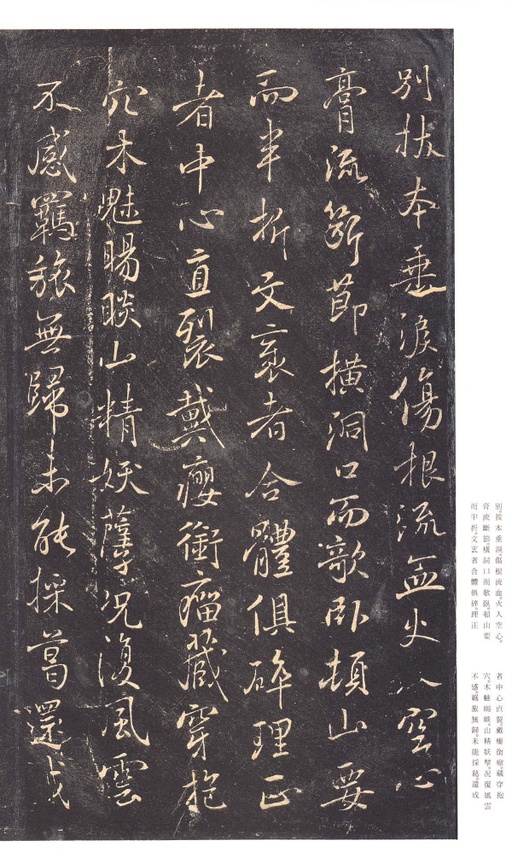 別拔本垂淚傷根流血火入空心
膏流斷節橫洞口而欹卧頓山要
而半折文衺者合體俱碎理正
者中心直裂戴癭銜瘤藏穿抱
穴木魅睗睒山精妖孽況復風雲
不感羈旅無歸未能採葛還成
別。拔本垂淚。傷根流血。火入空心。
膏流斷節。橫洞口而欹臥。頓山要
而半折。文衺者合體俱碎。理正
者中心直裂。戴癭銜瘤。藏穿抱
穴。木魅睗睒。山精妖孽。況復風雲
不感。羈旅無歸。未能採葛。還成